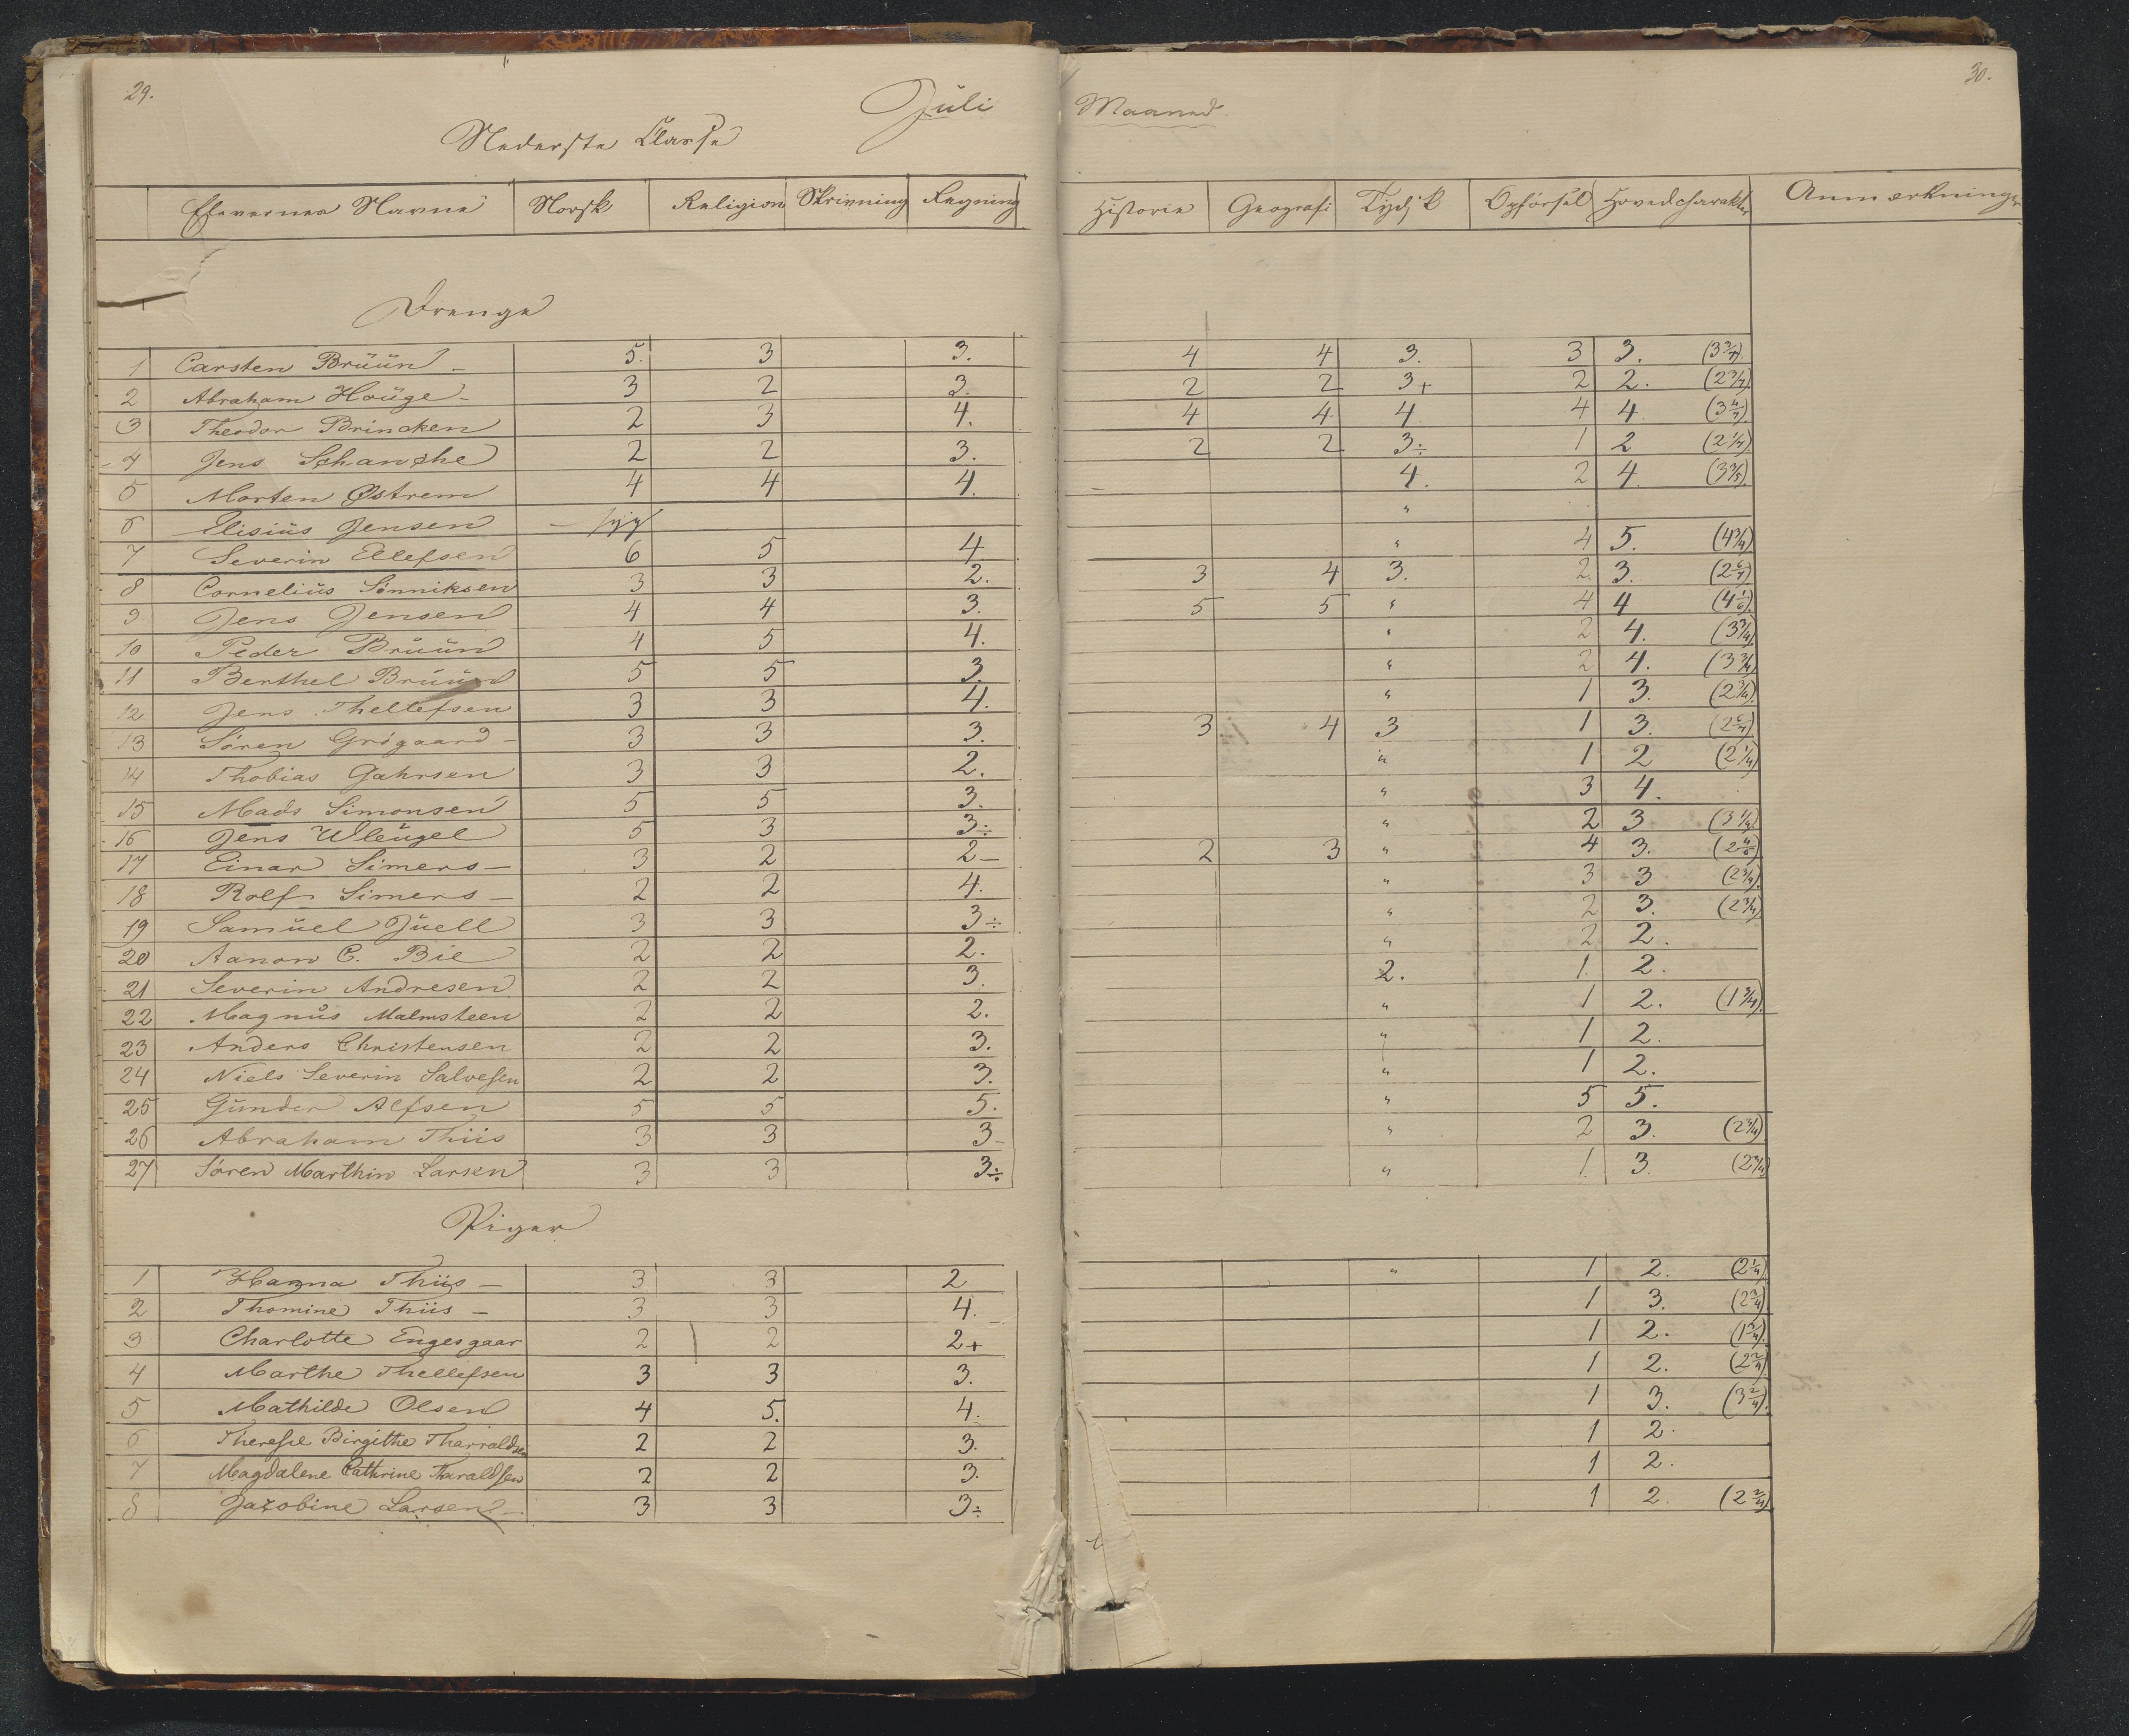 29. 30.
Juli Maaned.
Nederste Classe
Elevernes Navne Norsk Religion Skrivning Regning Historie Geografi Tydsk Opførsel Hovedcharakter Anmærkninger
Drenge
1 Carsten Brüün - 5. 3 3. 4 4 3. 3 3. (3 3/7).
2 Abraham Houge - 3 2 3. 2 2 3+ 2 2. (2 3/7)
3 Theodor Brincken 2 3 4. 4 4 4. 4 4. (3 4/7).
4 Jens Schanche 2 2 3. 2 2 3÷ 1 2 (2 1/7).
5 Morten Østrem 4 4 4. 4. 2 4. (3 3/5).
6 Elisius Jensen - syg "
7 Severin Ellefsen 6 5 4 " 4 5. (4 3/4)
8 Cornelius Sönniksen 3 3 2. 3 4 3. 2. 3. (2 6/7)
9 Jens Jensen 4 4 3. 5 5 " 4 4 (4 1/6).
10 Peder Brüün 4 5 4. " 2 4. (3 3/4)
11 Berthel Brüün 5 5 3. " 2 4. (3 3/4)
12 Jens Thellefsen 3 3 4. " 1 3. (2 3/4).
13 Søren Grögaard - 3 3 3. 3 4 3 1 3. (2 6/7)
14 Thobias Gahrsen 3 3 2. " 1 2 (2 1/4)
15 Mads Simonsen 5 5 3. " 3 4.
16 Jens Wleugel 5 3 3÷ " 2 3 (3 1/4)
17 Einar Simers - 3 2 2 - 2 3 " 4 3. (2 4/6)
18 Rolf Simers - 2 2 4. " 3 3 (2 3/4).
19 Samuel Juell 3 3 3÷ " 2 3. (2 3/4)
20 Aanon C. Bie 2 2 2. " 2 2.
21 Severin Andresen 2 2 3. 2. 1. 2.
22 Magnus Malmsteen 2 2 2. " 1 2. (1 3/4).
23 Anders Christensen 2 2 3. " 1 2.
24 Niels Severin Salvesen 2 2 3. " 1 2.
25 Gunder Alfsen 5 5 5. " 5 5.
26 Abraham Thiis 3 3 3 - " 2 3. (2 3/4)
27 Søren Marthin Larsen 3 3 3÷ " 1. 3. (2 3/4)
Piger
1 Hanna Thiis - 3 3 2 " 1 2. (2 1/4)
2 Thomine Thiis - 3 3 4. 1 3. (2 3/4).
3 Charlotte Engesgaar 2 2 2+ 1 2. (1 3/4).
4 Marthe Thellefsen 3 3 3. 1 2. (2 2/4)
5 Mathilde Olsen 4 5. 4. 1 3. (3 2/4).
6 Therese Birgithe Tharraldsen 2 2 3. 1 2.
7 Magdalene Cathrine Tharaldsen 2 2 3. 1 2.
8 Jacobine Larsen - 3 3 3÷ 1 2. (2 2/4)